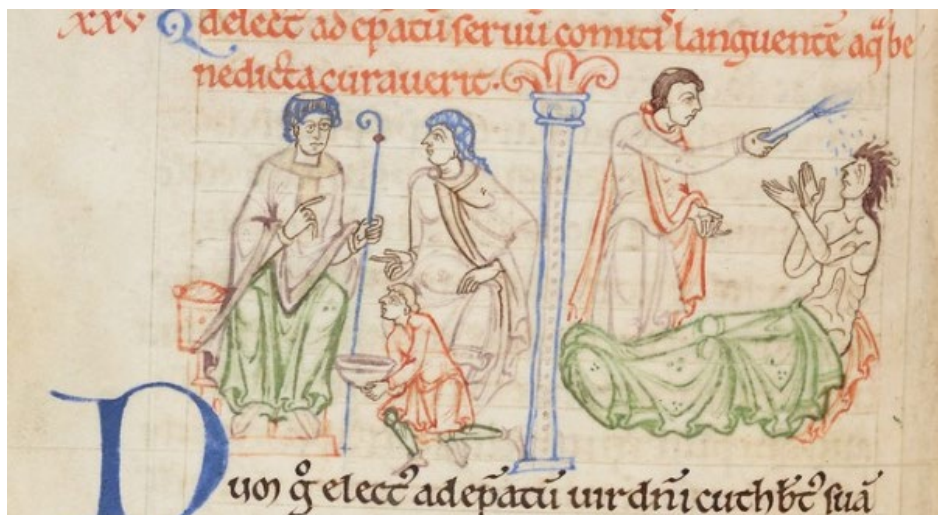 xxv Qdelect̄ ad ep̄atū seruū comitis languentē aq̄ be
nedicta curauerit.
Dum g̊ elect᷒ ad ep̄atū uir dn̄i cuthb̄t᷒ suā